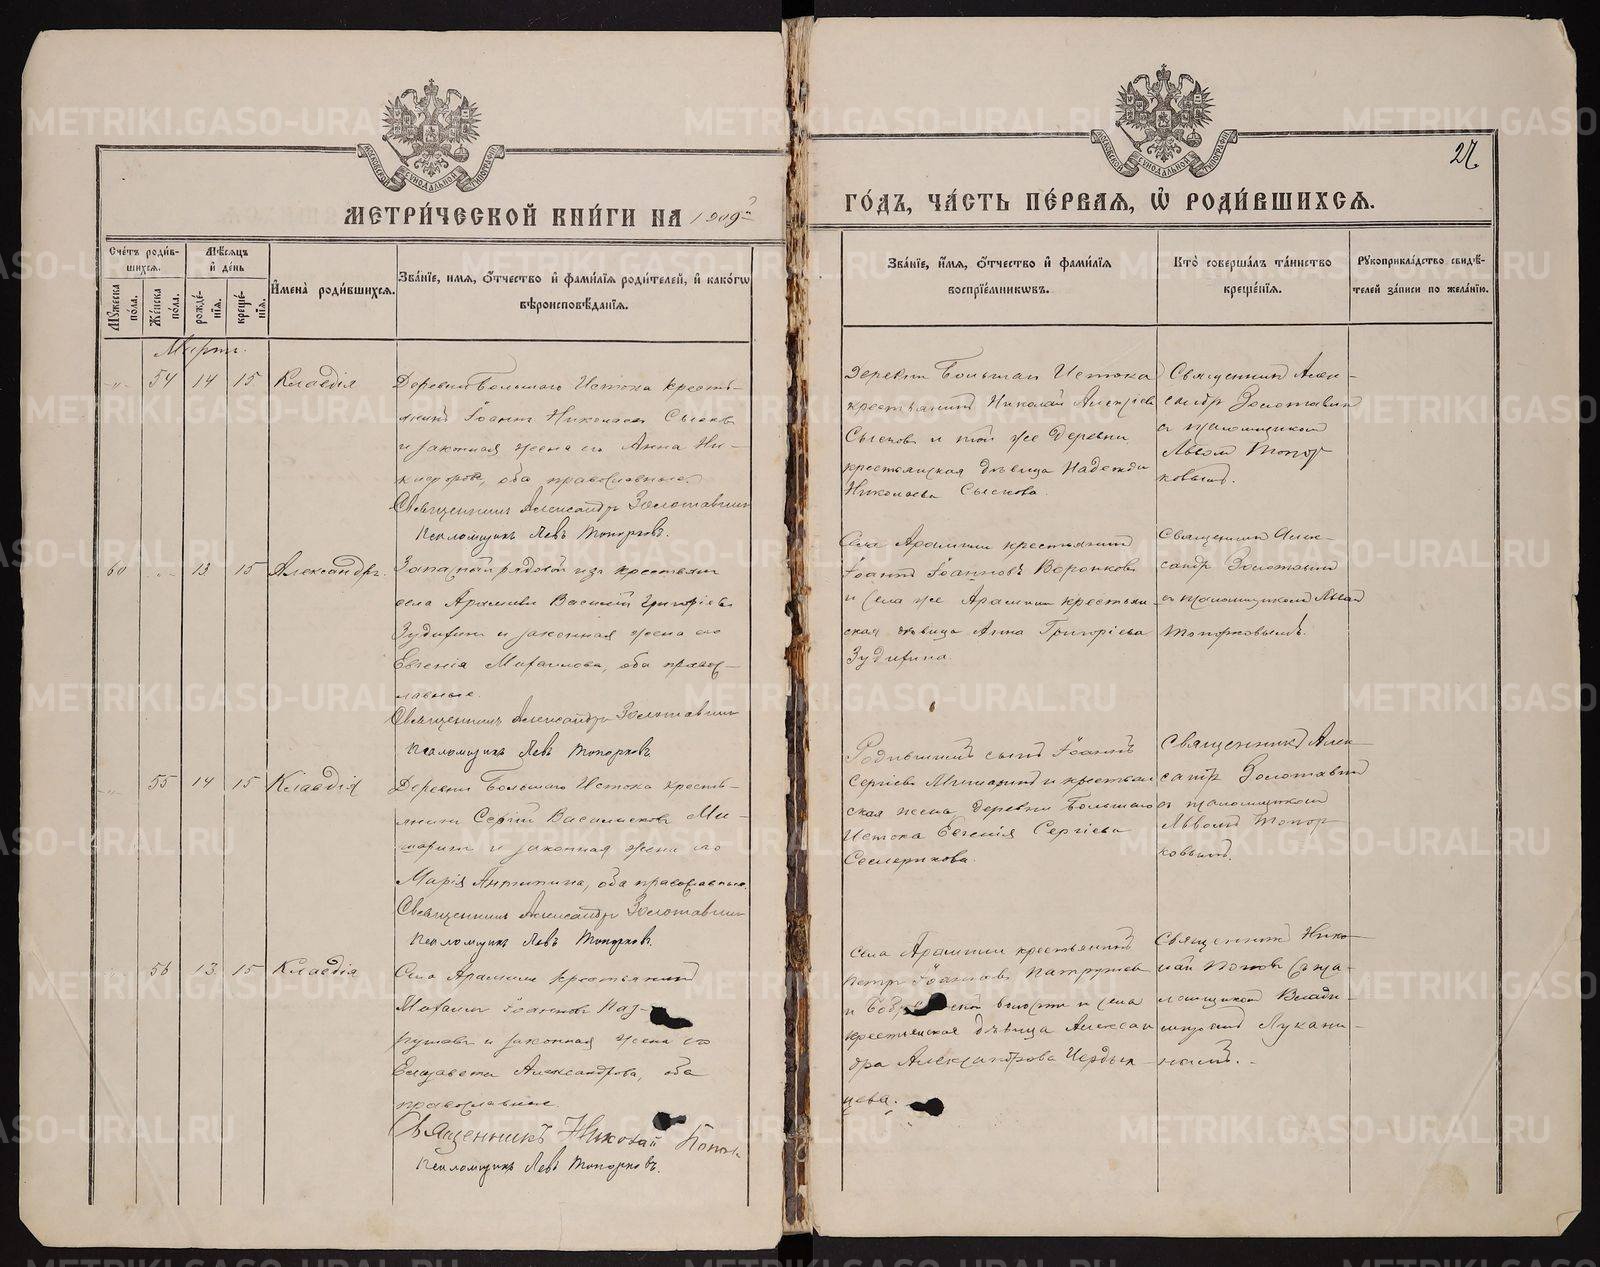 МЕТРИ́ЧЕСКОЙ КНИ́ГИ НА 1909й
ГО́ДЪ, ЧА́СТЬ ПЕ́РВАЯ, Ѡ҆ РОДИ́ВШИХСЯ.
27.
МОСКОВСКОЙ СѴНОДАЛЬНОЙ ТИПОГРАФІИ
МОСКОВСКОЙ СѴНОДАЛЬНОЙ ТИПОГРАФІИ
Сче́тъ роди́в-
шихся.
Мѣ́сяцъ
и҆ де́нь
Мꙋжеска по́ла.
Же́нска по́ла.
рожде́-
нїя.
креще́-
нїя.
И҆мена̀ роди́вшихся.
Зва́нїе, и́мя, ѻ҆́тчество и҆ фами́лїя роди́телей, и҆ како́гѡ
вѣроисповѣ́данїя.
Зва́нїе, и҆́мя, ѻ҆́тчество и҆ фами́лїя
воспрїе́мникѡвъ.
Кто̀ соверша́лъ та́инство
креще́нїя.
Рꙋкоприкла́дство свидѣ́-
телей за́писи по жела́нїю.
Мартъ.
54 14 15 Клавдія
Деревни Большаго Истока кресть-
янинъ Іоаннъ Николаевъ Сысковъ
и законная жена его Анна Ни-
кифорова, оба православные.
Священникъ Александръ Золотавинъ
Псаломщикъ Левъ Топорковъ.
Деревни Большаго Истока
крестьянинъ Николай Алексѣевъ
Сысковъ и той же деревни
крестьянская дѣвица Надежда
Николаева Сыскова.
Священникъ Алек-
сандръ Золотавинъ
съ псаломщикомъ
Львомъ Топор
ковымъ.
60 13 15 Александръ.
Запасный рядовой изъ крестьянъ
села Арамили Василій Григорьевъ
Зудихинъ и законная жена его
Евгенія Михаилова, оба правос-
лавные.
Священникъ Александръ Золотавинъ
Псаломщикъ Левъ Топорковъ.
Села Арамили крестьянинъ
Іоаннъ Іоанновъ Воронковъ
и села же Арамили крестьян
ская дѣвица Анна Григоріева
Зудихина.
Священникъ Алек-
сандръ Золотавинъ
съ псаломщикомъ Львомъ
Топорковымъ.
55 14 15 Клавдія
Деревни Большаго Истока кресть-
янинъ Сергій Васильевъ Ми-
шаринъ и законная жена его
Марія Антипина, оба православные.
Священникъ Александръ Золотавинъ
Псаломщикъ Левъ Топорковъ.
Родившихъ сынъ Іоаннъ
Сергіевъ Мишаринъ и крестьян
ская жена деревни Большаго
Истока Евгенія Сергіева
Священникъ Алек-
сандръ Золотавинъ
съ псаломщикомъ
Львомъ Топор
ковымъ.
56 13 15 Клавдія
Села Арамили крестьянинъ
Михаилъ Іоанновъ Пат-
рушевъ и законная жена его
Елизавета Александрова, оба
православные.
Священникъ Николай Поповъ
Псаломщикъ Левъ Топорковъ.
Села Арамили крестьянинъ
Петръ Іоанновъ Патрушевъ
и волости и села
крестьянская дѣвица Алексан
дра Александрова Чердын-
цева.
Священникъ Нико-
лай Поповъ съ пса-
ломщикомъ Влади-
міромъ Лукани-
нымъ.
METRIKI.GASO-URAL.RU